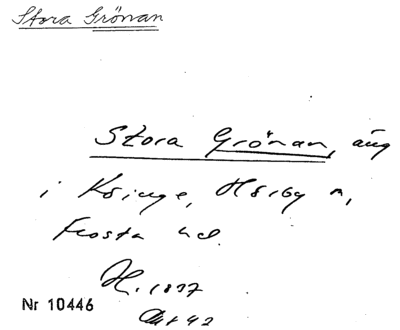 Stora Grönan
Stora Grönan, äng
i Ksinge, Hörby n,
Frosta hd.
H. 1877
Nr 10446